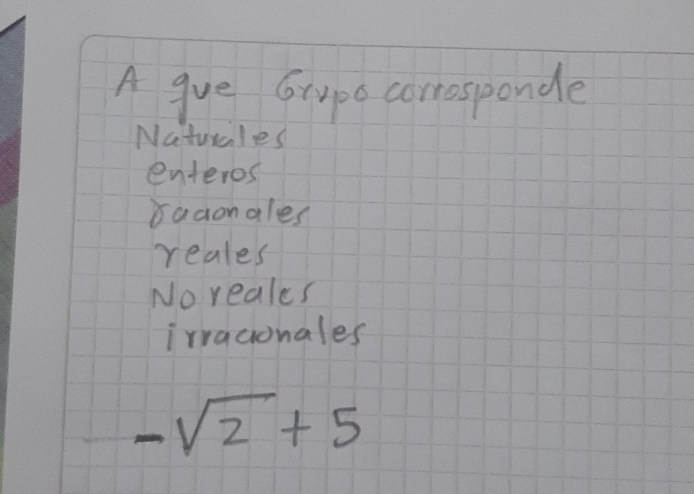 A que Grupo corresponde
Naturales
enteros
racionales
reales
No reales
irracionales
-√2 + 5